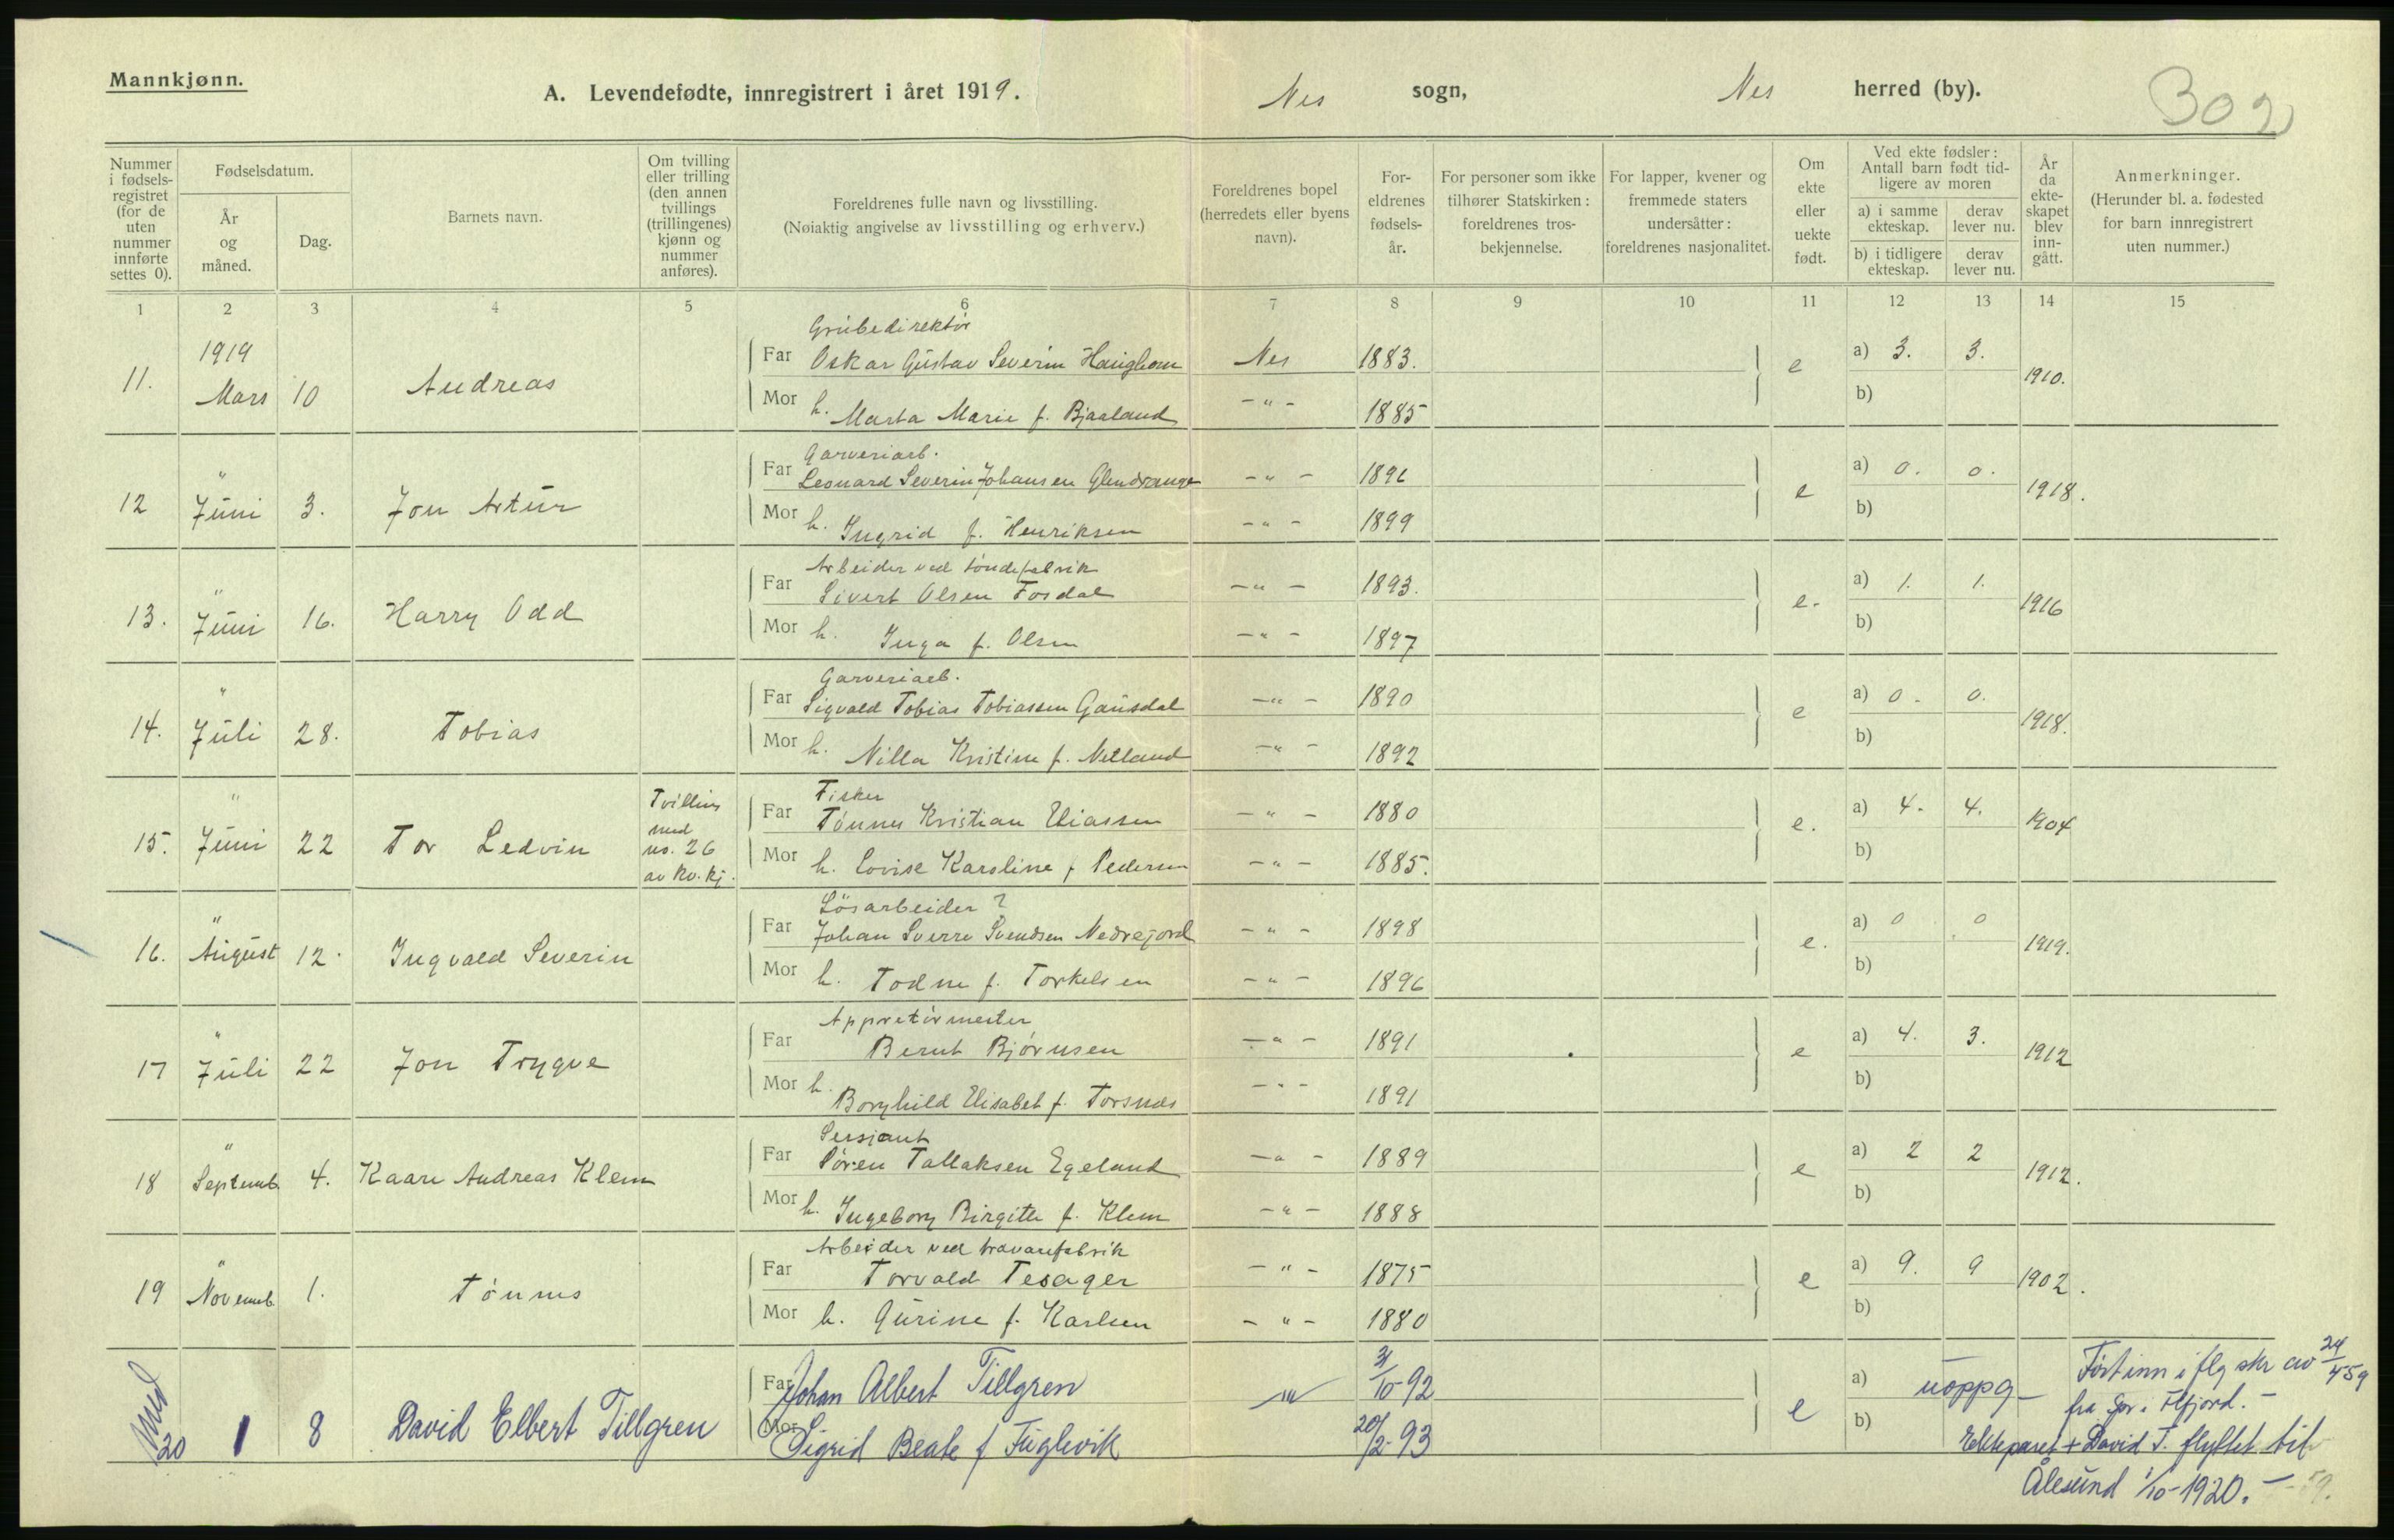 Mannkjønn.
A. Levendefødte, innregistrert i året 1919.
Nes sogn,
Nes herred (by).
302
Nummer i fødselsregistret (for de uten nummer innførte settes 0).
Fødselsdatum.
År og måned.
Dag.
Barnets navn.
Om tvilling eller trilling (den annen tvillings (trillingenes) kjønn og nummer anføres).
Foreldrenes fulle navn og livsstilling.
(Nøiaktig angivelse av livsstilling og erhverv.)
Foreldrenes bopel (herredets eller byens navn).
Foreldrenes fødselsår.
For personer som ikke tilhører Statskirken: foreldrenes trosbekjennelse.
For lapper, kvener og fremmede staters undersåtter: foreldrenes nasjonalitet.
Om ekte eller uekte født.
Ved ekte fødsler: Antall barn født tidligere av moren
a) i samme ekteskap.
derav lever nu.
b) i tidligere ekteskap.
derav lever nu.
År da ekteskapet blev inngått.
Anmerkninger.
(Herunder bl. a. fødested for barn innregistrert uten nummer.)
1 2 3 4 5 6 7 8 9 10 11 12 13 14 15
Grubedirektør
11. 1919 Mars 10 Andreas Far Oskar Gustav Severin Haughom Nes 1883. e a) 3. 3. 1910.
Mor h. Marta Marie f. Bjaaland -"- 1885 b)
Garveriarb.
12 " Juni 3. Jon Artur Far Leonard Severin Johansen Glendrange -"- 1896 e a) 0. 0. 1918.
Mor h. Ingrid f. Henriksen -"- 1899 b)
Arbeider ved tøndefabrik
13. " Juni 16. Harry Odd Far Sivert Olsen Fosdal -"- 1893. e. a) 1. 1. 1916
Mor h. Inga f. Olsen -"- 1897 b)
Garveriarb.
14. " Juli 28. Tobias Far Sigvald Tobias Tobiassen Gausdal -"- 1890 e a) 0. 0. 1918.
Mor h. Nilla Kristine f. Netland -"- 1892 b)
Fisker
15. " Juni 22 Tor Ledvin Tvilling med no. 26 av kv. kj. Far Tønnes Kristian Eliassen -"- 1880 e. a) 4. 4. 1904
Mor h. Lovise Karoline f Pedersen -"- 1885. b)
Løsarbeider ?
16. " August 12. Ingvald Severin Far Johan Sverre Svendsen Nedrejord -"- 1898 e. a) 0 0 1919.
Mor h. Todne f. Torkelsen -"- 1896 b)
Appretørmester
17 " Juli 22 Jon Trygve Far Bernt Bjørnsen -"- 1891 e a) 4. 3. 1912
Mor h. Borghild Elisabet f. Torsnes -"- 1891 b)
Sersjant
18 " Septemb. 4. Kaare Andreas Klem Far Søren Tallaksen Egeland -"- 1889 e a) 2 2 1912.
Mor h. Ingeborg Birgitte f. Klem -"- 1888 b)
Arbeider ved trævarefabrik
19 " Novemb. 1. Tønnes Far Torvald Tesager -"- 1875 e a) 9. 9 1902.
Mor h. Gurine f. Karlsen -"- 1880 b)
20 1 8 David Elbert Tillgren Far Johan Albert Tillgren -"- 31/10-92 e a) uoppg- Ført inn iflg skr av 24/4 59
Mor Sigrid Beate f Fuglevik 20/2-93 b) fra Spr. i Flfjord.-
Ekteparet + David T. flyttet til
Ålesund 1/10-1920.-